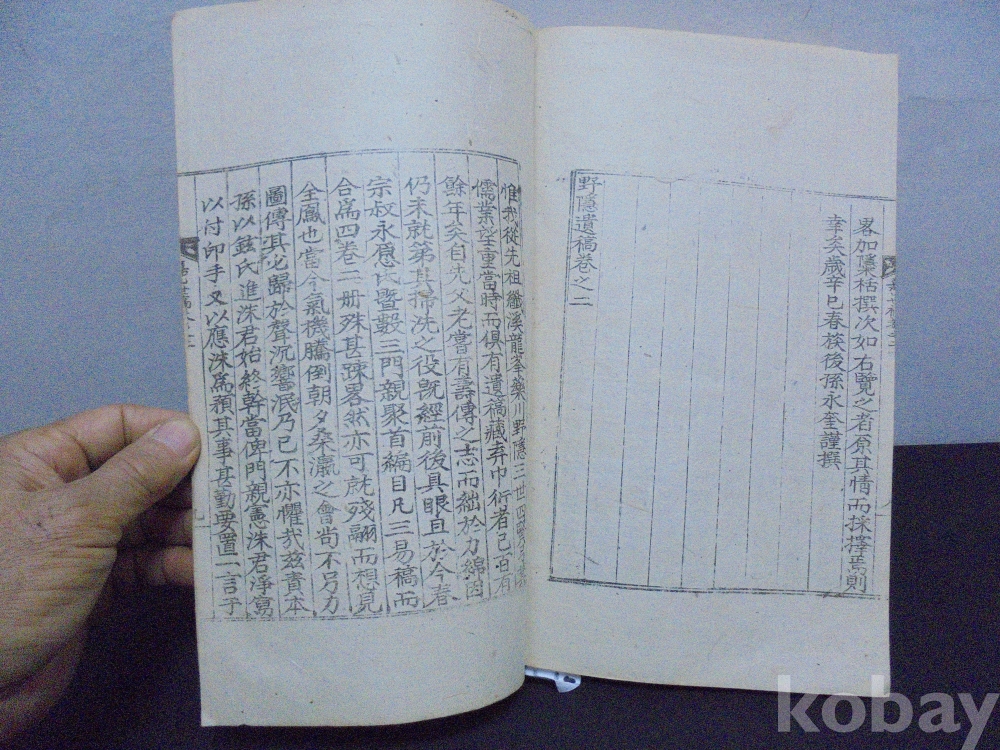 畧加檃栝撰次如右覽之者原其情而採擇焉則
幸矣歲辛巳春族後孫永奎謹撰
野隱遺稿卷之二
惟我從先祖纖溪龍峯藥川野隱三世四
儒業望重當時而俱有遺稿藏弆巾衍者已百有
餘年矣自先父老嘗有壽傳之志而絀於力綿因
仍未就第其掃洗之役旣經前後具眼且於今春
宗叔永悳氏曁數三門親聚首編目凡三易稿而
合爲四卷二册殊甚踈畧然亦可就殘翮而想見
全鳳也當今氣機騰倒朝夕桑瀛之會尚不另力
圖傳其必歸於聲沉響泯乃已不亦懼哉玆賷本
孫以鉉氏進洙君始終幹當俾門親憲洙君淨寫
以付印手又以應洙爲預其事甚勤要置一言予
kobay